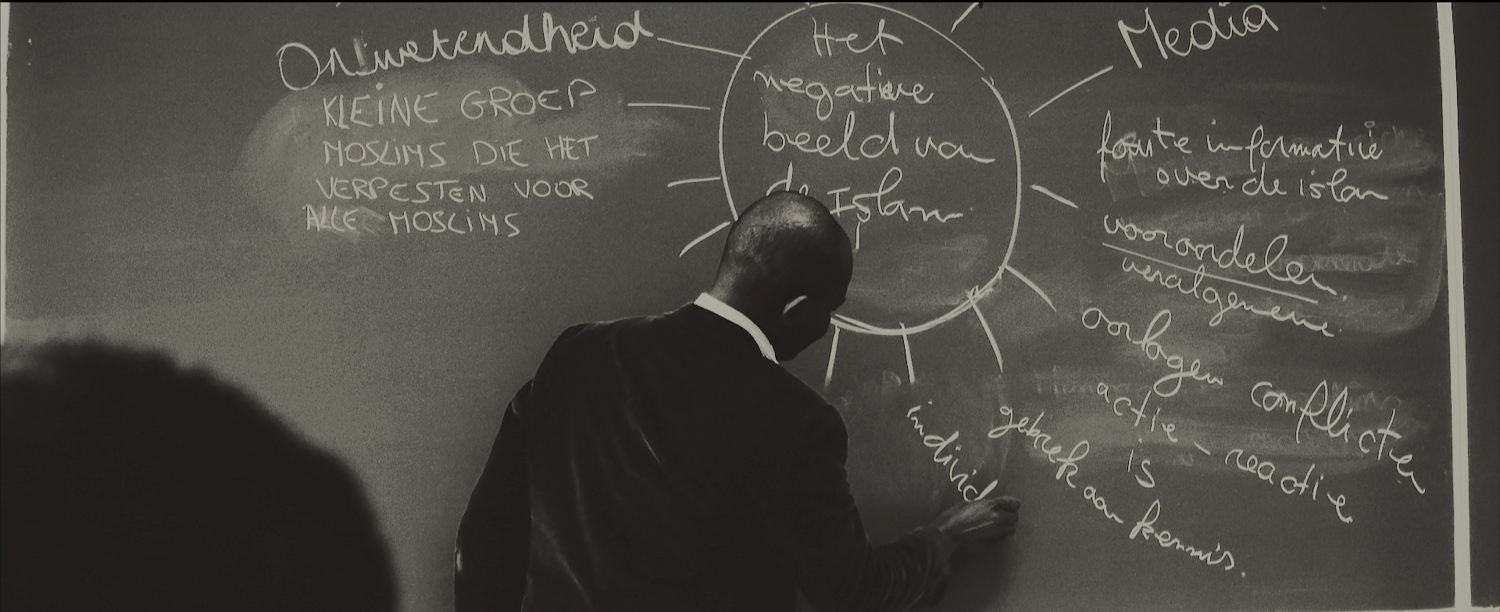 Onwetendheid
KLEINE GROEP
MOSLIMS DIE HET
VERPESTEN VOOR
ALLE MOSLIMS
Het
negatieve
beeld van
de Islam
Media
foute informatie
over de islam
vooroordelen
veralgemene
oorlogen conflicten
actie - reactie
is
gebrek aan kennis.
individ